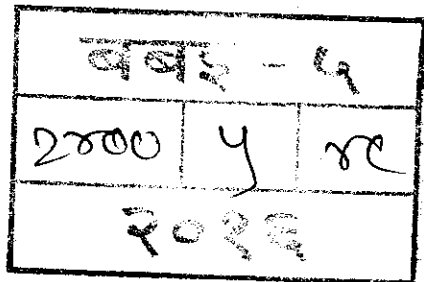 बबइ - ५
२४०० ५ ४८
२०१६